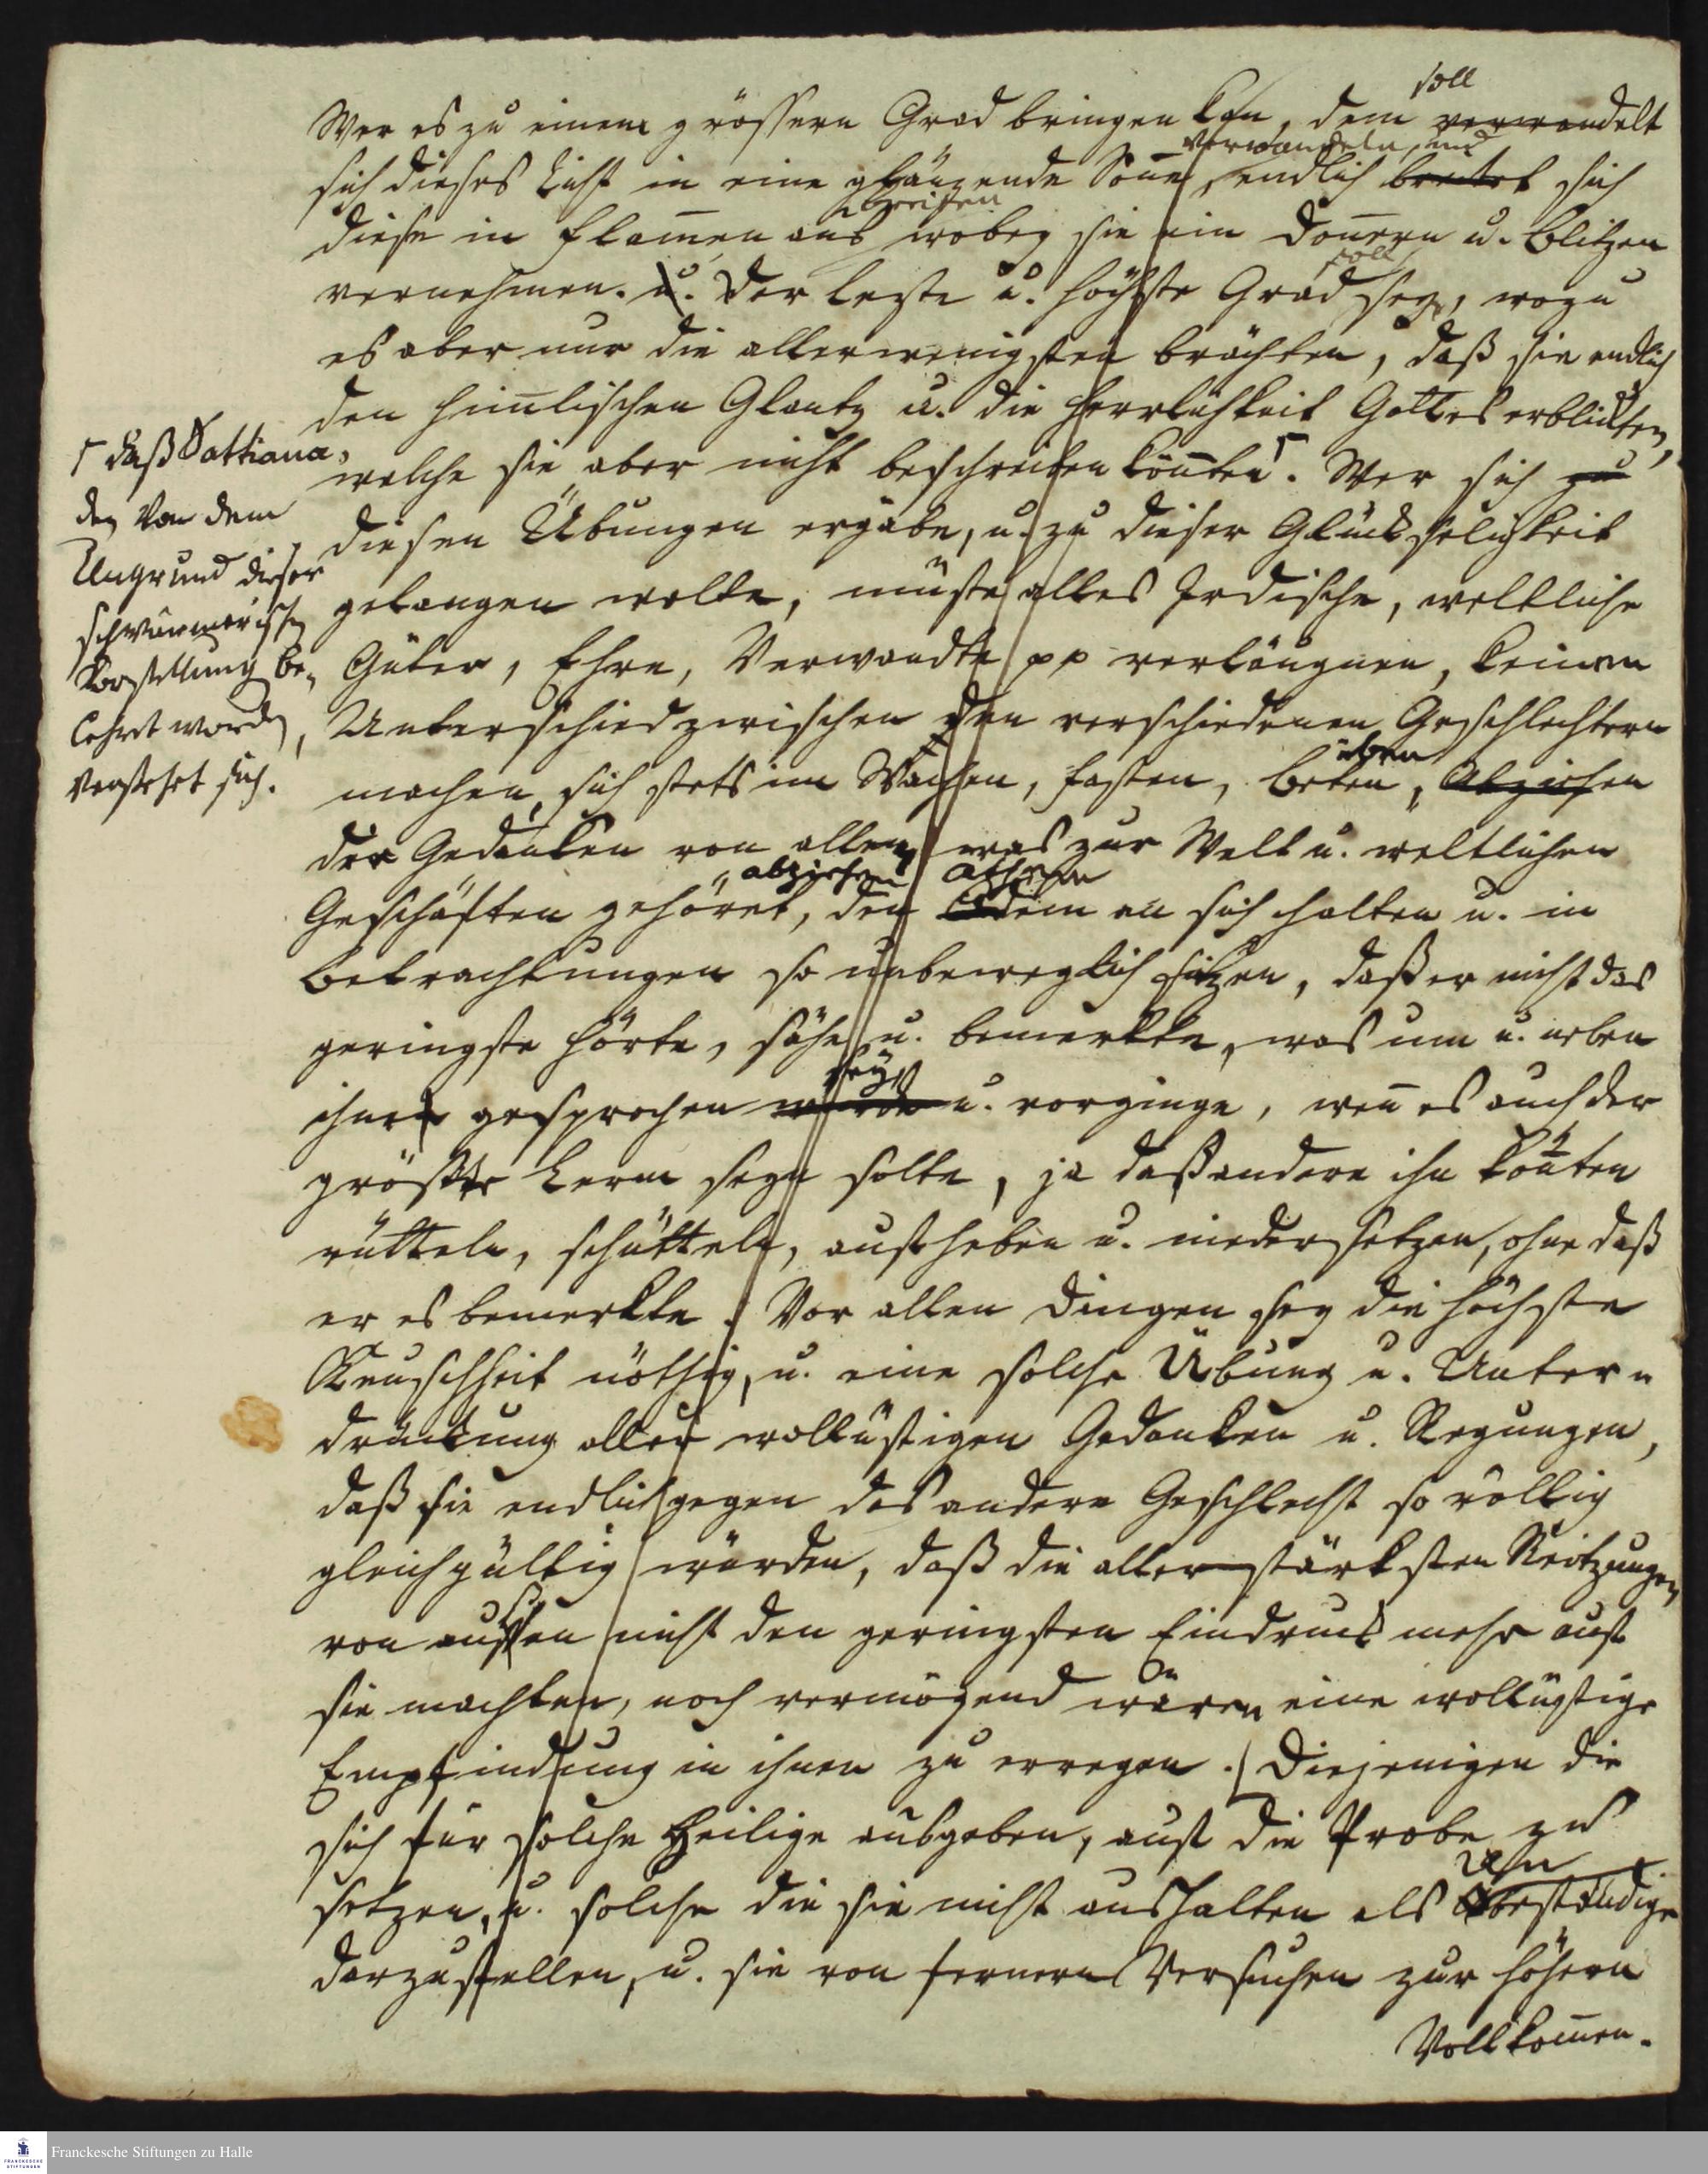 soll
Wer es zu einem grössern Grad bringen kan, dem verwandelt
verwandeln, und
sich dieses Licht in eine glänzende Soñe, endlich breitet sich
breiten
diese in Flam̃en aus wobey sie ein Doñern u. Blitzen
soll
vernehmen. u. Der lezte u. höchste Grad sey, wozu
es aber nur die allerwenigsten brächten, daß sie endlich
den him̃lischen Glantz u. die Herrlichkeit Gottes erblickten,
welche sie aber nicht beschreiben köñten. Wer sich zu
diesen Übungen ergäbe, u. zu dieser Glückseligkeit
gelangen wolte, müste alles Irdische, weltliche
Güter, Ehre, Verwandte pp verläugnen, keinen
Unterschied zwischen den verschiedenen Geschlechtern
üben
machen, sich stets im Wachen, fasten, beten, Abziehen
der Gedanken von allem was zur Welt u. weltlichen
abziehen Athem
Geschäften gehöret, den Odem an sich halten u. in
Betrachtungen so unbeweglich sitzen, daß er nicht das
geringste hörte, sähe u. bemerkte, was um u. neben
sey
ihnen gesprochen würde u. vorginge, weñ es auch der
größte Lerm seyn solte, ja daß andere ihn köñten
rütteln, schütteln, aufheben u. niedersetzen, ohne daß
er es bemerkte. Vor allen Dingen sey die höchste
Keuschheit nöthig, u. eine solche Übung u. Unter-
drückung aller wollüstigen Gedanken u. Regungen,
daß sie endlich gegen das andere Geschlecht so völlig
gleichgültig würden, daß die allerstärksten Reitzungen
von aussen nicht den geringsten Eindruck mehr auf
sie machten, noch vermögend wären eine wollüstige
Empfindung in ihnen zu erregen. Diejenigen die
sich für solche Heilige ausgeben, auf die Probe zu
setzen, u. solche die sie nicht aushalten als Unbeständige
darzustellen, u. sie von fernern Versuchen zur höhern
Vollkom̃en-
daß Sattiana,
den von dem
Ungrund dieser
schwärmerischen
Vorstellung be-
lehrt worden,
verstehet sich.
Franckesche Stiftungen zu Halle